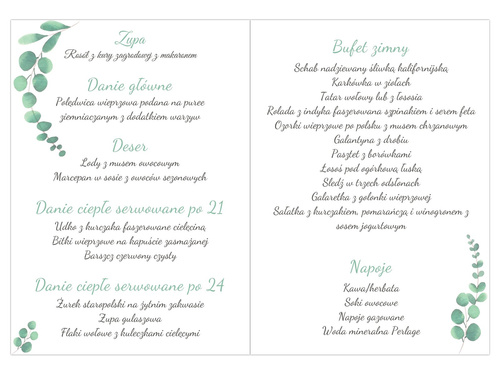 Zupa
Rosół z kury zagrodowej z makaronem
Danie główne
Polędwica wieprzowa podana na puree
ziemniaczanym z dodatkiem warzyw
Deser
Lody z musem owocowym
Marcepan w sosie z owoców sezonowych
Danie ciepłe serwowane po 21
Udko z kurczaka faszerowane cielęciną
Bitki wieprzowe na kapuście zasmażanej
Barszcz czerwony czysty
Danie ciepłe serwowane po 24
Żurek staropolski na żytnim zakwasie
Zupa gulaszowa
Flaki wołowe z kuleczkami cielęcymi
Bufet zimny
Schab nadziewany śliwką kalifornijską
Karkówka w ziołach
Tatar wołowy lub z łososia
Rolada z indyka faszerowana szpinakiem i serem feta
Ozorki wieprzowe po polsku z musem chrzanowym
Galantyna z drobiu
Pasztet z borówkami
Łosoś pod ogórkową łuską
Śledź w trzech odsłonach
Galaretka z golonki wieprzowej
Sałatka z kurczakiem, pomarańczą i winogronem z
sosem jogurtowym
Napoje
Kawa/herbata
Soki owocowe
Napoje gazowane
Woda mineralna Perlage